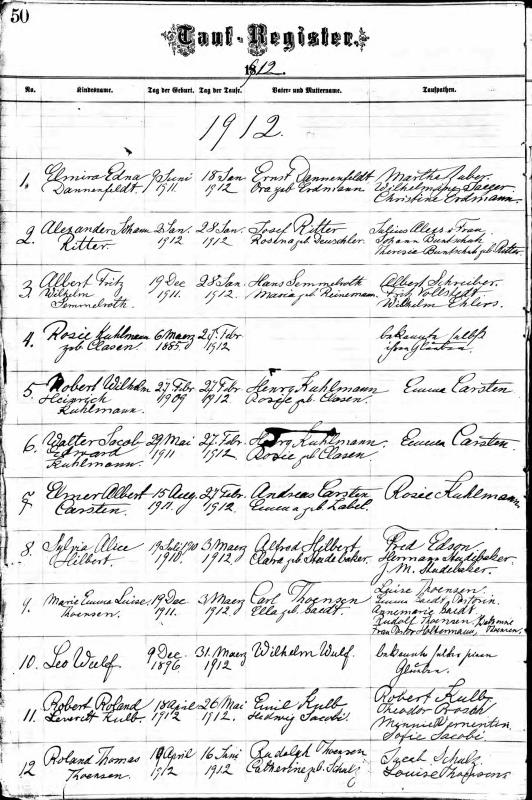 50
Tauf-Register.
1912.
No. Kindesname. Tag der Geburt. Tag der Taufe. Vater- und Muttername. Taufpathen.
1912.
1. Elmira Edna 9 Juni 18 Jan Ernst Dannenfeldt Martha
Dannenfeldt 1911. 1912 Ora geb Erdmann Wilhelmine Jaeger
Christine Erdmann.
2. Alexander Johann 2 Jan. 28 Jan. Josef Ritter Julius
Ritter 1912 1912. Rosina geb Deuschler. Johann Buntschuh
Theresia Buntschuh geb Ritter
3. Albert Fritz 19 Dec 28 Jan Hans Semmelroth Albert Schreiber.
Wilhelm 1911. 1912. Maria geb Reinemann. Fritz Vollstedt
Semmelroth. Wilhelm Ehlers.
4. Rosie Kuhlmann 6 Maerz 27. Febr bekannte selbst
geb Clasen. 1885. 1912 ihren Glauben
5. Robert Wilhelm 27 Febr 27 Febr Henry Kuhlmann Emma Carsten
Heinrich 1909 1912 Rosie geb Clasen.
Kuhlmann.
6. Walter Jacob 29 Mai 27. Febr Henry Kuhlmann Emma Carsten.
Edward 1911 1912 Rosie geb Clasen
Kuhlmann.
7. Elmer Albert 15 Aug. 27 Febr. Andreas Carsten Rosie Kuhlmann
Carsten. 1911. 1912 Emma geb Zabel.
8. Sylvia Alice 19 Juli 1910 3 Maerz Alfred Hilbert Fred Edson
Hilbert 1910. 1912 Clara geb Studebaker. Hermann Studebaker.
J. M. Studebaker.
9. Marie Emma Luise 19 Dec 3 Maerz Carl Thoensen Luise Thoensen.
Thoensen. 1911. 1912. Ella geb Saedt. Emma Saedt,
Annemarie Saedt
Rudolf Thoensen, Catherine
Thoensen.
10. Leo Wulf 9 Dec. 31. Maerz Wilhelm Wulf. bekannte selbst seinen
1896 1912 Glauben.
11. Robert Roland 18 April 26 Mai Emil Kulb Robert Kulb
Leverett Kulb. 1912 1912. Hedwig Jacobi. Theodor Brosch
Minnie
Sofie Jacobi.
12 Roland Thomas 19 April 16 Juni Rudolph Thoensen Jacob Schulz
Thoensen. 1912 1912 Catherine geb. Schulz Louise Thoensen